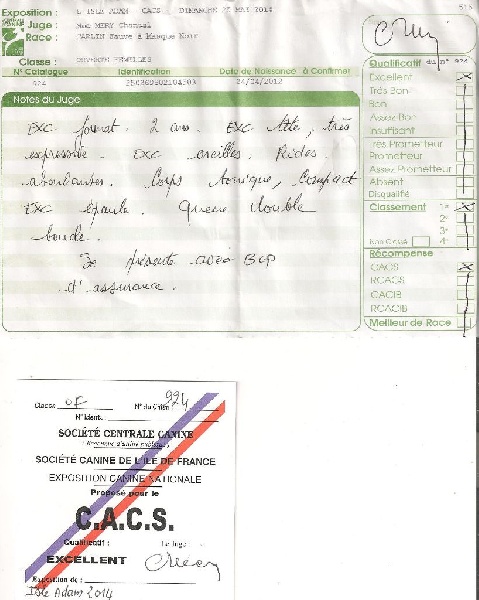 Exposition : L'ISLE ADAM CACS DIMANCHE 25 MAI 2014
Juge : Mme MERY Chantal
Race : CARLIN Fauve à Masque Noir
Classe : OUVERTE FEMELLES
N° Catalogue Identification Date de Naissance à Confirmer
924 24/04/2012
Notes du Juge
Exc format. 2 ans. Exc tête, très
expressive. Exc oreilles. Rides
abondantes. Corps tonique, compact
Exc épaule. Queue double
boucle.
Se présente avec Bcp
d'assurance.
Qualificatif du n° 924
Excellent
Très Bon
Bon
Assez Bon
Insuffisant
Très Prometteur
Prometteur
Assez Prometteur
Absent
Disqualifié
Classement 1er
2e
3e
Non Classé 4e
Récompense
CACS
RCACS
CACIB
RCACIB
Meilleur de Race
Classe OF N° du Chien : 924
N° Ident.
SOCIÉTÉ CENTRALE CANINE
SOCIÉTÉ CANINE DE L'ILE DE FRANCE
EXPOSITION CANINE NATIONALE
Proposé pour le
C.A.C.S.
Qualificatif : Le Juge
EXCELLENT
Exposition de :
Isle Adam 2014